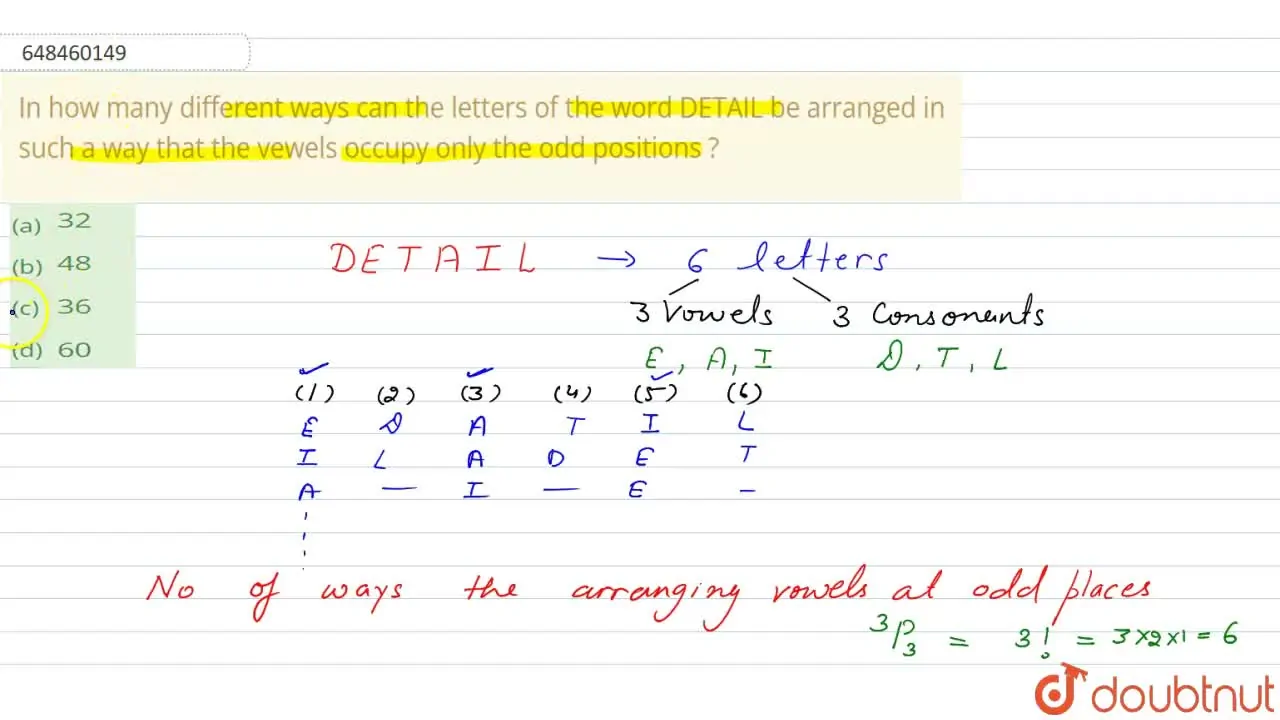 648460149
In how many different ways can the letters of the word DETAIL be arranged in
such a way that the vewels occupy only the odd positions ?
(a) 32
(b) 48
(c) 36
(d) 60
DETAIL → 6 letters
3 Vowels 3 Consonants
E, A, I D, T, L
(1) (2) (3) (4) (5) (6)
E D A T I L
I L A D E T
A — I — E –
No of ways the arranging vowels at odd places
³P₃ = 3! = 3×2×1 = 6
doubtnut